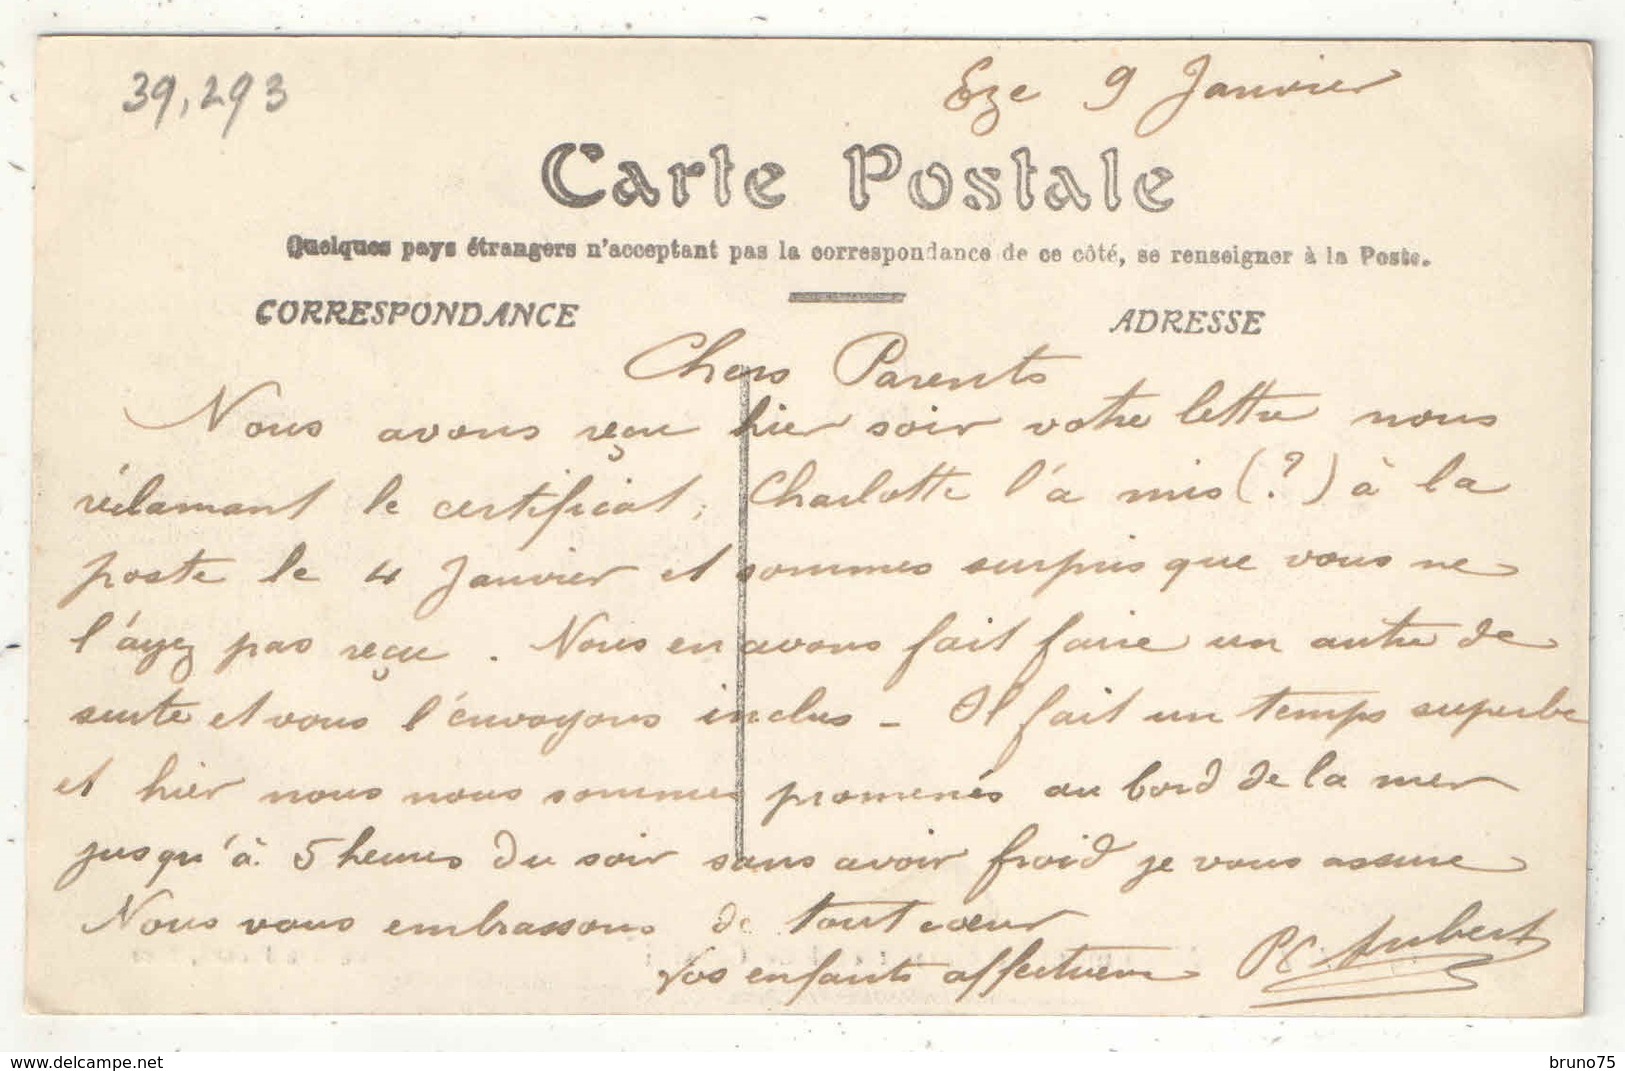 39,293
Eze 9 Janvier
Carte Postale
Quelques pays étrangers n'acceptant pas la correspondance de ce côté, se renseigner à la Poste.
CORRESPONDANCE
ADRESSE
Chers Parents
Nous avons reçu hier soir votre lettre nous
réclamant le certificat, Charlotte l'a mis (?) à la
poste le 4 Janvier et sommes surpris que vous ne
l'ayez pas reçu. Nous en avons fait faire un autre de
suite et vous l'envoyons inclus - Il fait un temps superbe
et hier nous nous sommes promenés au bord de la mer
jusqu'à 5 heures du soir sans avoir froid je vous assure
Nous vous embrassons de tout cœur
Vos enfants affectueux Aubert
delcampe.net
bruno75